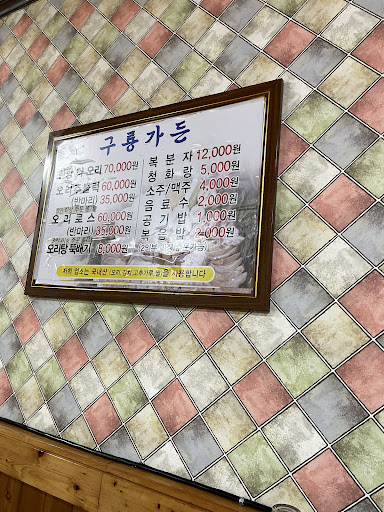 구룡가든
오리 70,000원
60,000원
(반마리) 35,000원
오리로스 60,000원
(반마리) 35,000원
오리탕 뚝배기 8,000원
복분자 12,000원
청화랑 5,000원
소주/맥주 4,000원
음료수 2,000원
공기밥 1,000원
볶음밥 2,000원
저희 업소는 국내산 (오리, 김치, 고추가루, 쌀)을 사용합니다